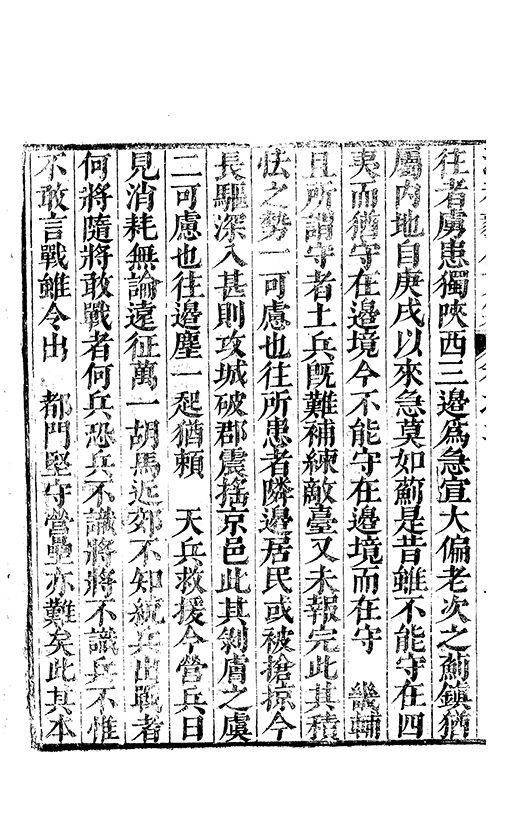 往者虜患獨陝西三邊爲急宣大偏老次之薊鎮猶
屬內地自庚戌以來急莫如薊是昔雖不能守在四
夷而猶守在邊境今不能守在邊境而在守　畿輔
且所謂守者土兵旣難補練敵臺又未報完此其積
怯之勢一可慮也往所患者隣邊居民或被搶掠今
長驅深入甚則攻城破郡震搖京邑此其剝膚之虞
二可慮也往邊塵一起猶賴　天兵救援今營兵日
見消耗無論遠征萬一胡馬近郊不知統兵出戰者
何將隨將敢戰者何兵恐兵不識將將不識兵不惟
不敢言戰雖令出　都門堅守營壘亦難矣此其本